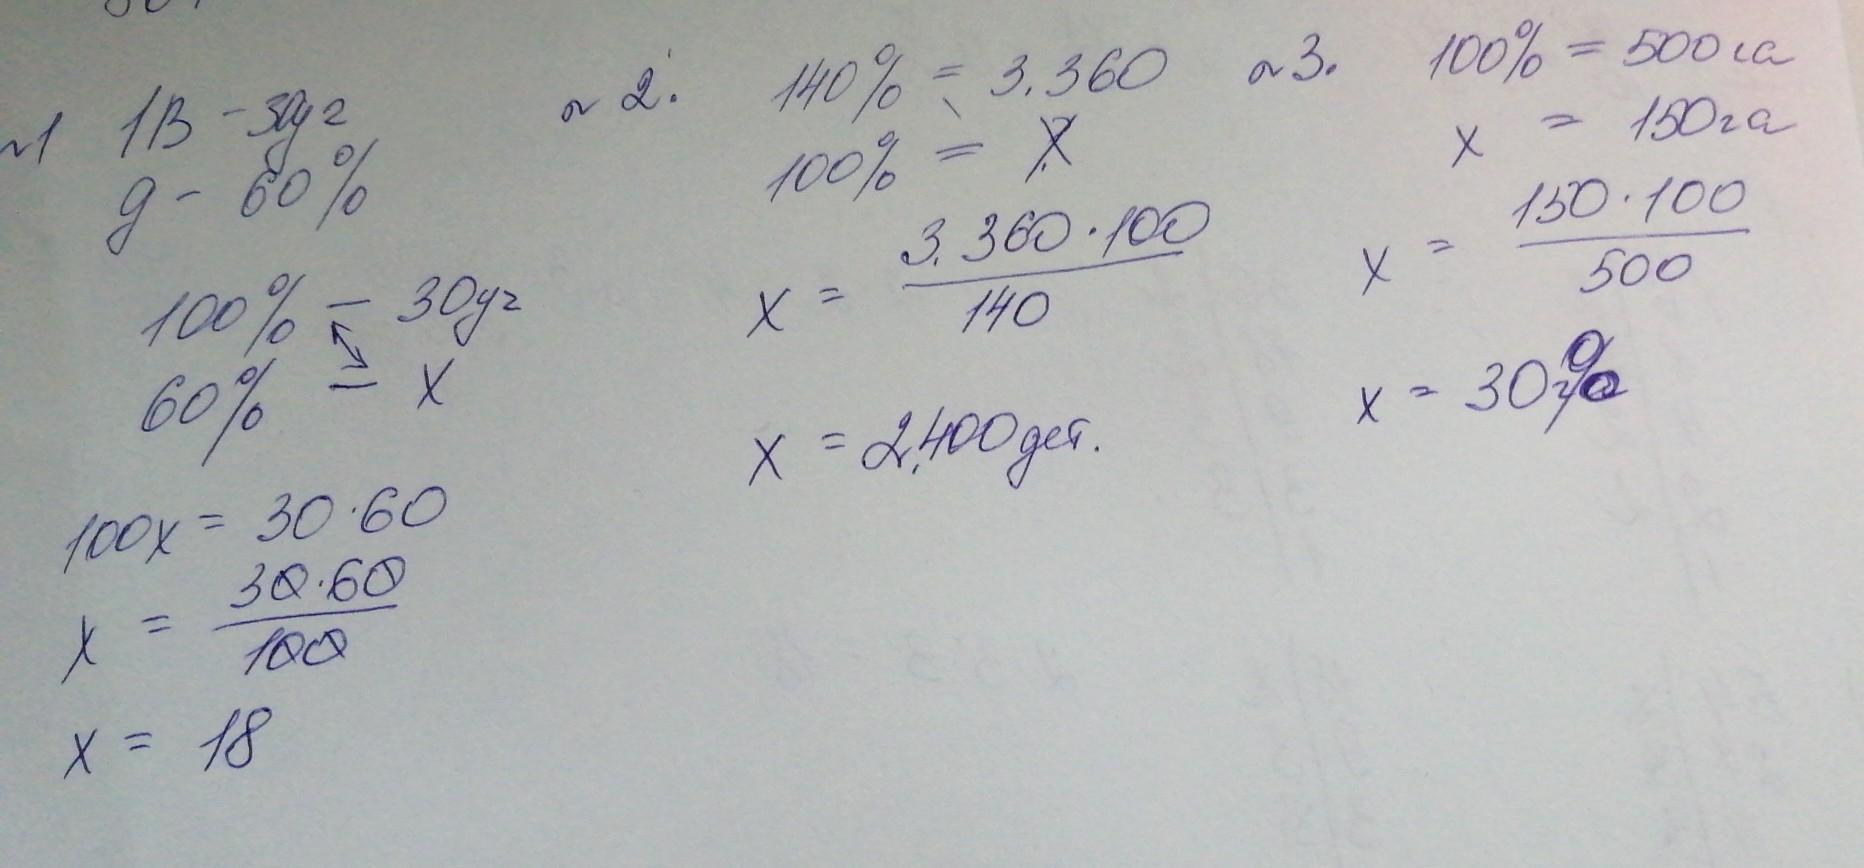 №1 1В - 30уг
д - 60%
100% - 30уг
60% - х
100х = 30·60
х = 30·60 / 100
х = 18
№2. 140% = 3.360
100% = х
х = 3.360·100 / 140
х = 2.400 дет.
№3. 100% = 500 га
х = 150 га
х = 150·100 / 500
х = 30%